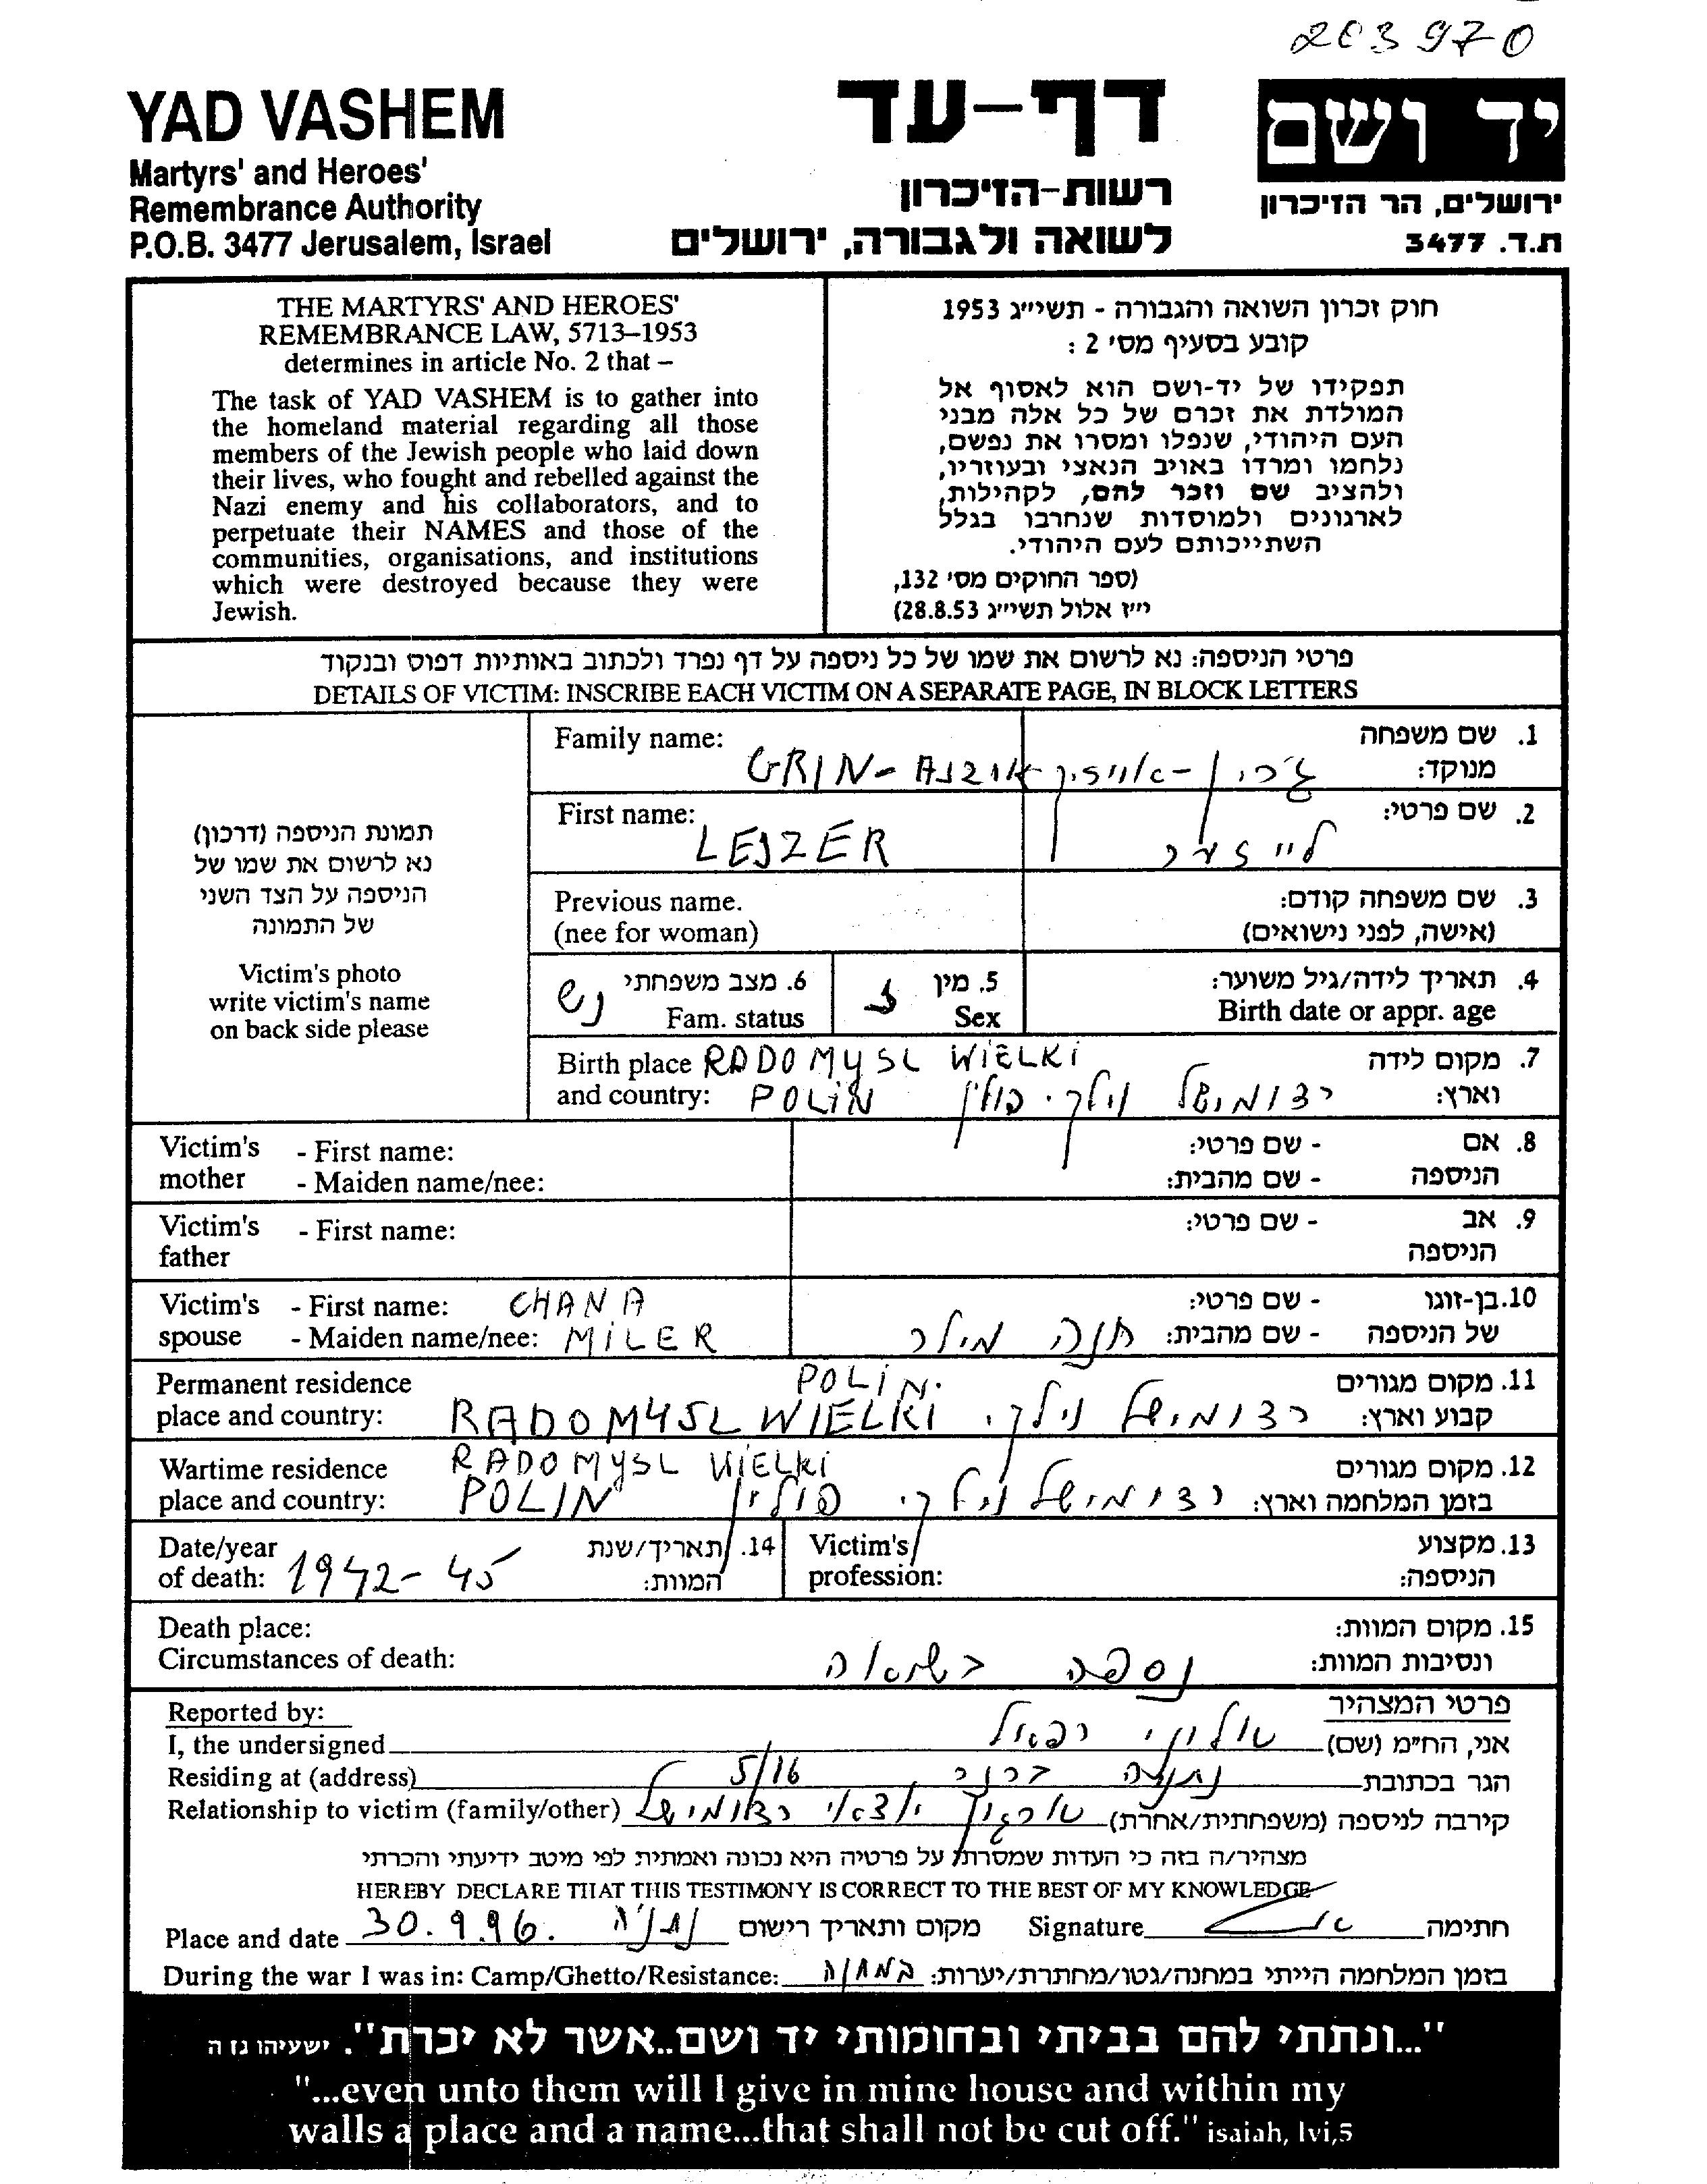 203970
YAD VASHEM
Martyrs' and Heroes'
Remembrance Authority
P.O.B. 3477 Jerusalem, Israel
דף-עד
רשות-הזיכרון
לשואה ולגבורה, ירושלים
יד ושם
ירושלים, הר הזיכרון
ת.ד. 3477
THE MARTYRS' AND HEROES'
REMEMBRANCE LAW, 5713–1953
determines in article No. 2 that –
The task of YAD VASHEM is to gather into
the homeland material regarding all those
members of the Jewish people who laid down
their lives, who fought and rebelled against the
Nazi enemy and his collaborators, and to
perpetuate their NAMES and those of the
communities, organisations, and institutions
which were destroyed because they were
Jewish.
חוק זכרון השואה והגבורה - תשי״ג 1953
קובע בסעיף מס׳ 2 :
תפקידו של יד-ושם הוא לאסוף אל
המולדת את זכרם של כל אלה מבני
העם היהודי, שנפלו ומסרו את נפשם,
נלחמו ומרדו באויב הנאצי ובעוזריו,
ולהציב שם וזכר להם, לקהילות,
לארגונים ולמוסדות שנחרבו בגלל
השתייכותם לעם היהודי.
(ספר החוקים מס׳ 132,
י״ז אלול תשי״ג 28.8.53)
פרטי הניספה: נא לרשום את שמו של כל ניספה על דף נפרד ולכתוב באותיות דפוס ובנקוד
DETAILS OF VICTIM: INSCRIBE EACH VICTIM ON A SEPARATE PAGE, IN BLOCK LETTERS
תמונת הניספה (דרכון)
נא לרשום את שמו של
הניספה על הצד השני
של התמונה
Victim's photo
write victim's name
on back side please
Family name: GRIN- גרין- 1. שם משפחה
מנוקד:
First name: LEJZER לייזער 2. שם פרטי:
Previous name. 3. שם משפחה קודם:
(nee for woman) (אישה, לפני נישואים)
נש 6. מצב משפחתי ז 5. מין 4. תאריך לידה/גיל משוער:
Fam. status Sex Birth date or appr. age
Birth place RADOMYSL WIELKI 7. מקום לידה
and country: POLIN רדומישל וילקי פולין וארץ:
Victim's - First name: - שם פרטי: 8. אם
mother - Maiden name/nee: - שם מהבית: הניספה
Victim's - First name: - שם פרטי: 9. אב
father הניספה
Victim's - First name: CHANA - שם פרטי: 10. בן-זוגו
spouse - Maiden name/nee: MILER חנה מילר - שם מהבית: של הניספה
Permanent residence POLIN. 11. מקום מגורים
place and country: RADOMYSL WIELKI רדומישל וילקי קבוע וארץ:
Wartime residence RADOMYSL WIELKI 12. מקום מגורים
place and country: POLIN רדומישל וילקי פולין בזמן המלחמה וארץ:
Date/year 14. תאריך/שנת Victim's 13. מקצוע
of death: 1942-45 המוות: profession: הניספה:
Death place: 15. מקום המוות:
Circumstances of death: נספה בשואה ונסיבות המוות:
Reported by: פרטי המצהיר
I, the undersigned אלוני רפאל אני, החי״מ (שם)
Residing at (address) נתניה ברנר 5/16 הגר בכתובת
Relationship to victim (family/other) ארגון יוצאי רדומישל קירבה לניספה (משפחתית/אחרת)
מצהיר/ה בזה כי העדות שמסרתי על פרטיה היא נכונה ואמתית לפי מיטב ידיעתי והכרתי
HEREBY DECLARE THAT THIS TESTIMONY IS CORRECT TO THE BEST OF MY KNOWLEDGE
Place and date 30.9.96. נתניה מקום ותאריך רישום Signature חתימה
During the war I was in: Camp/Ghetto/Resistance: במחנה בזמן המלחמה הייתי במחנה/גטו/מחתרת/יערות:
"...ונתתי להם בביתי ובחומותי יד ושם..אשר לא יכרת". ישעיהו נו ה
"...even unto them will I give in mine house and within my
walls a place and a name...that shall not be cut off." isaiah, lvi,5